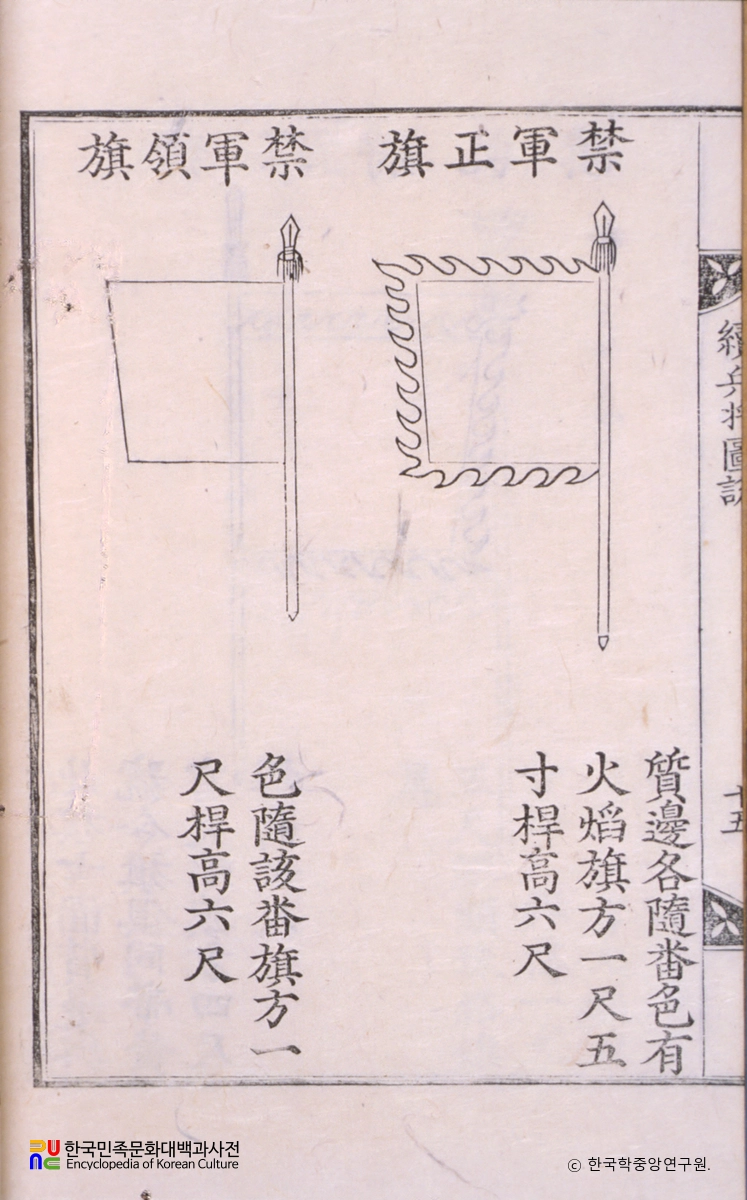 續兵將圖說
十五
禁軍正旗
質邊各隨畨色有
火焰旗方一尺五
寸桿高六尺
禁軍領旗
色隨該畨旗方一
尺桿高六尺
한국민족문화대백과사전
Encyclopedia of Korean Culture
© 한국학중앙연구원.